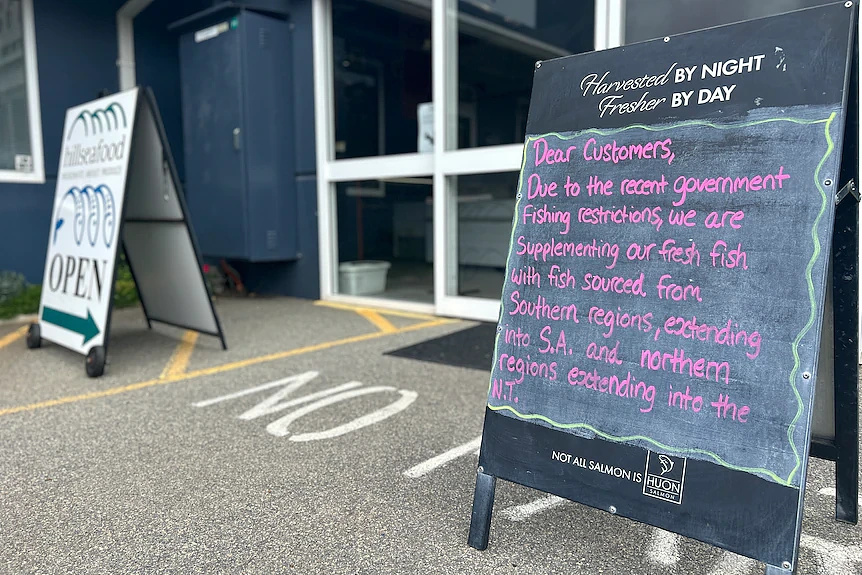 Harvested BY NIGHT
Fresher BY DAY
Dear Customers,
Due to the recent government
Fishing restrictions, we are
Supplementing our fresh fish
with fish sourced from
Southern regions, extending
into S.A. and northern
regions extending into the
N.T.
NOT ALL SALMON IS HUON
SALMON
hillseafood
OPEN
NO